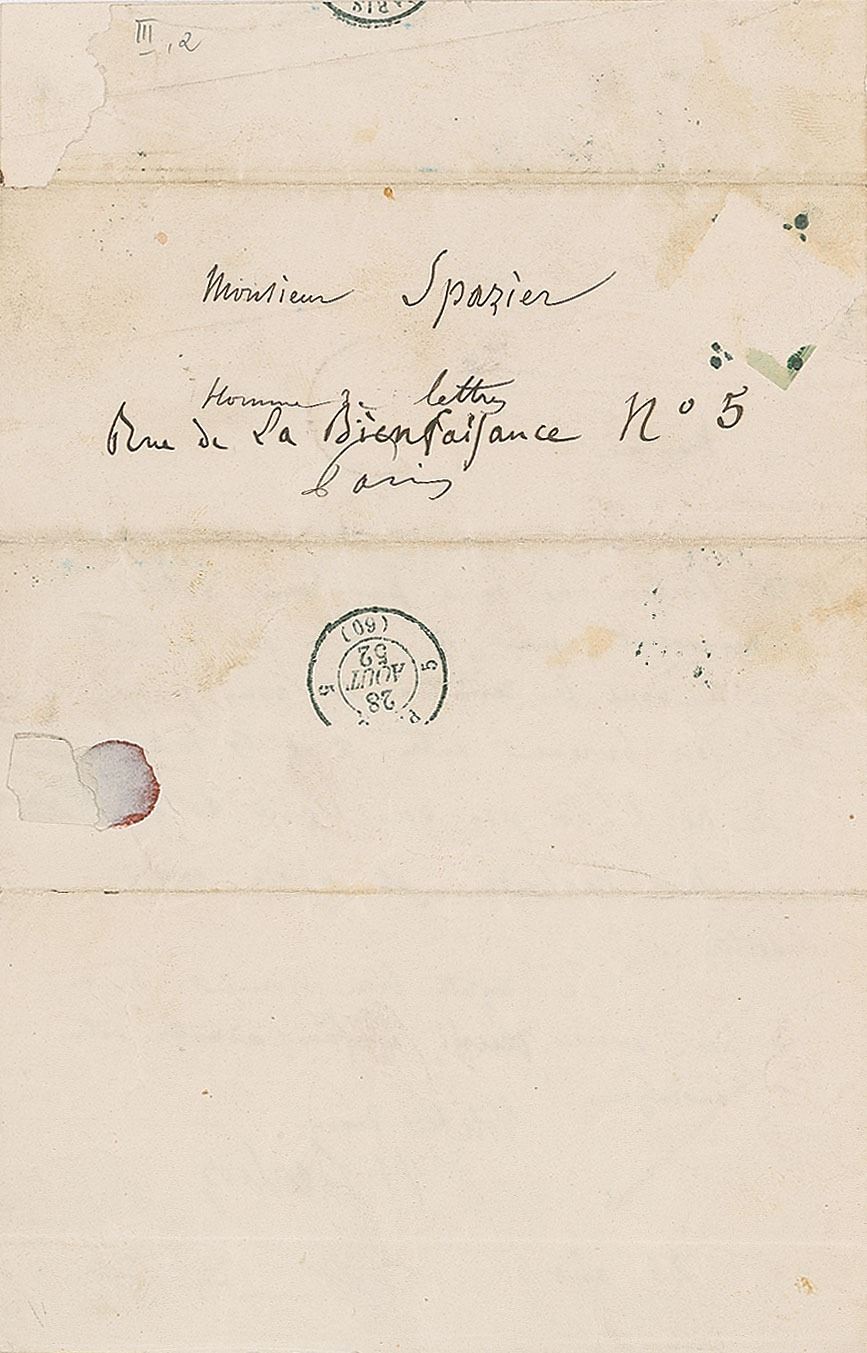 PARIS
III, 2
Monsieur Spazier
Homme de lettres
Rue de La Bienfaisance No 5
Paris
(60)
5 28 AOUT 52 5